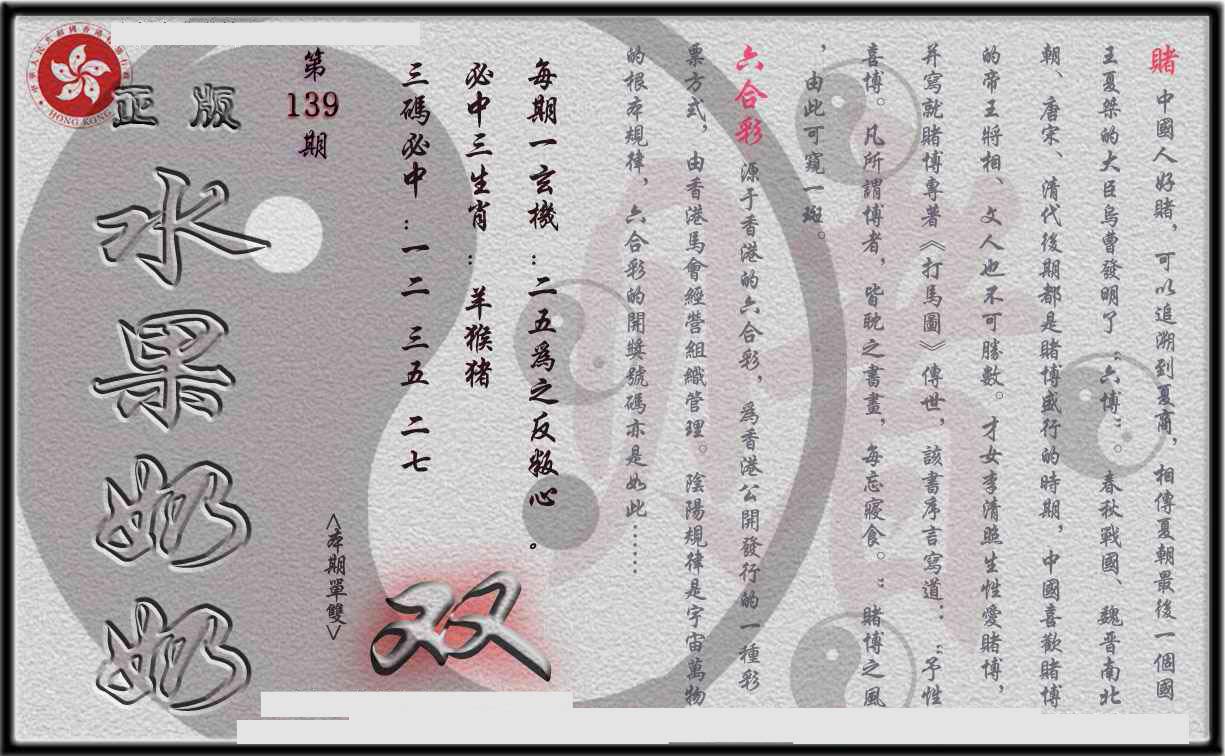 賭 中國人好賭，可以追溯到夏商，相傳夏朝最後一個國
王夏桀的大臣烏曹發明了“六博”。春秋戰國、魏晋南北
朝、唐宋、清代後期都是賭博盛行的時期，中國喜歡賭博
的帝王將相、文人也不可勝數。才女李清照生性愛賭博，
并寫就賭博專著《打馬圖》傳世，該書序言寫道：“予性
喜博。凡所謂博者，皆耽之書畫，每忘寢食。”賭博之風
，由此可窺一斑。
六合彩 源于香港的六合彩，爲香港公開發行的一種彩
票方式，由香港馬會經營組織管理。陰陽規律是宇宙萬物
的根本規律，六合彩的開獎號碼亦是如此……
每期一玄機：二五爲之反叛心。
必中三生肖：羊猴猪
三碼必中：一二 三五 二七
第
139
期
<本期單雙>
双
正版
水果奶奶
HONG KONG